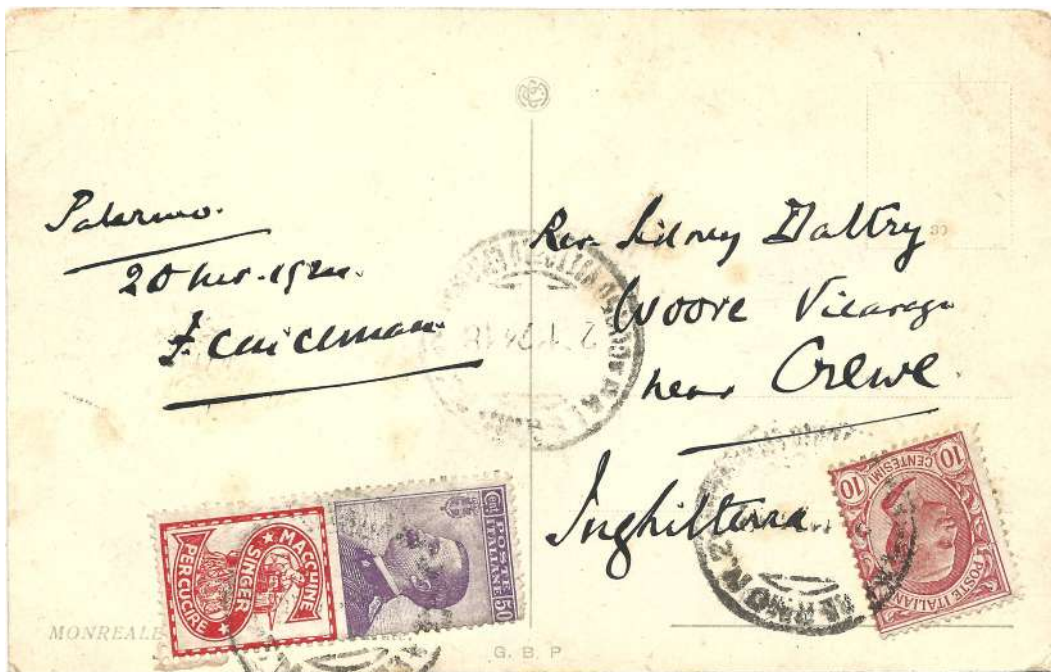 Palermo.
20 Nov. 1924.
Rev. Sidney Daltry
Woore Vicarage
near Crewe.
Inghilterra
MACCHINE
SINGER
PER CUCIRE
Cent. 50
POSTE
ITALIANE
10 10
CENTESIMI
POSTE ITALIANE
MONREALE
G. B. P